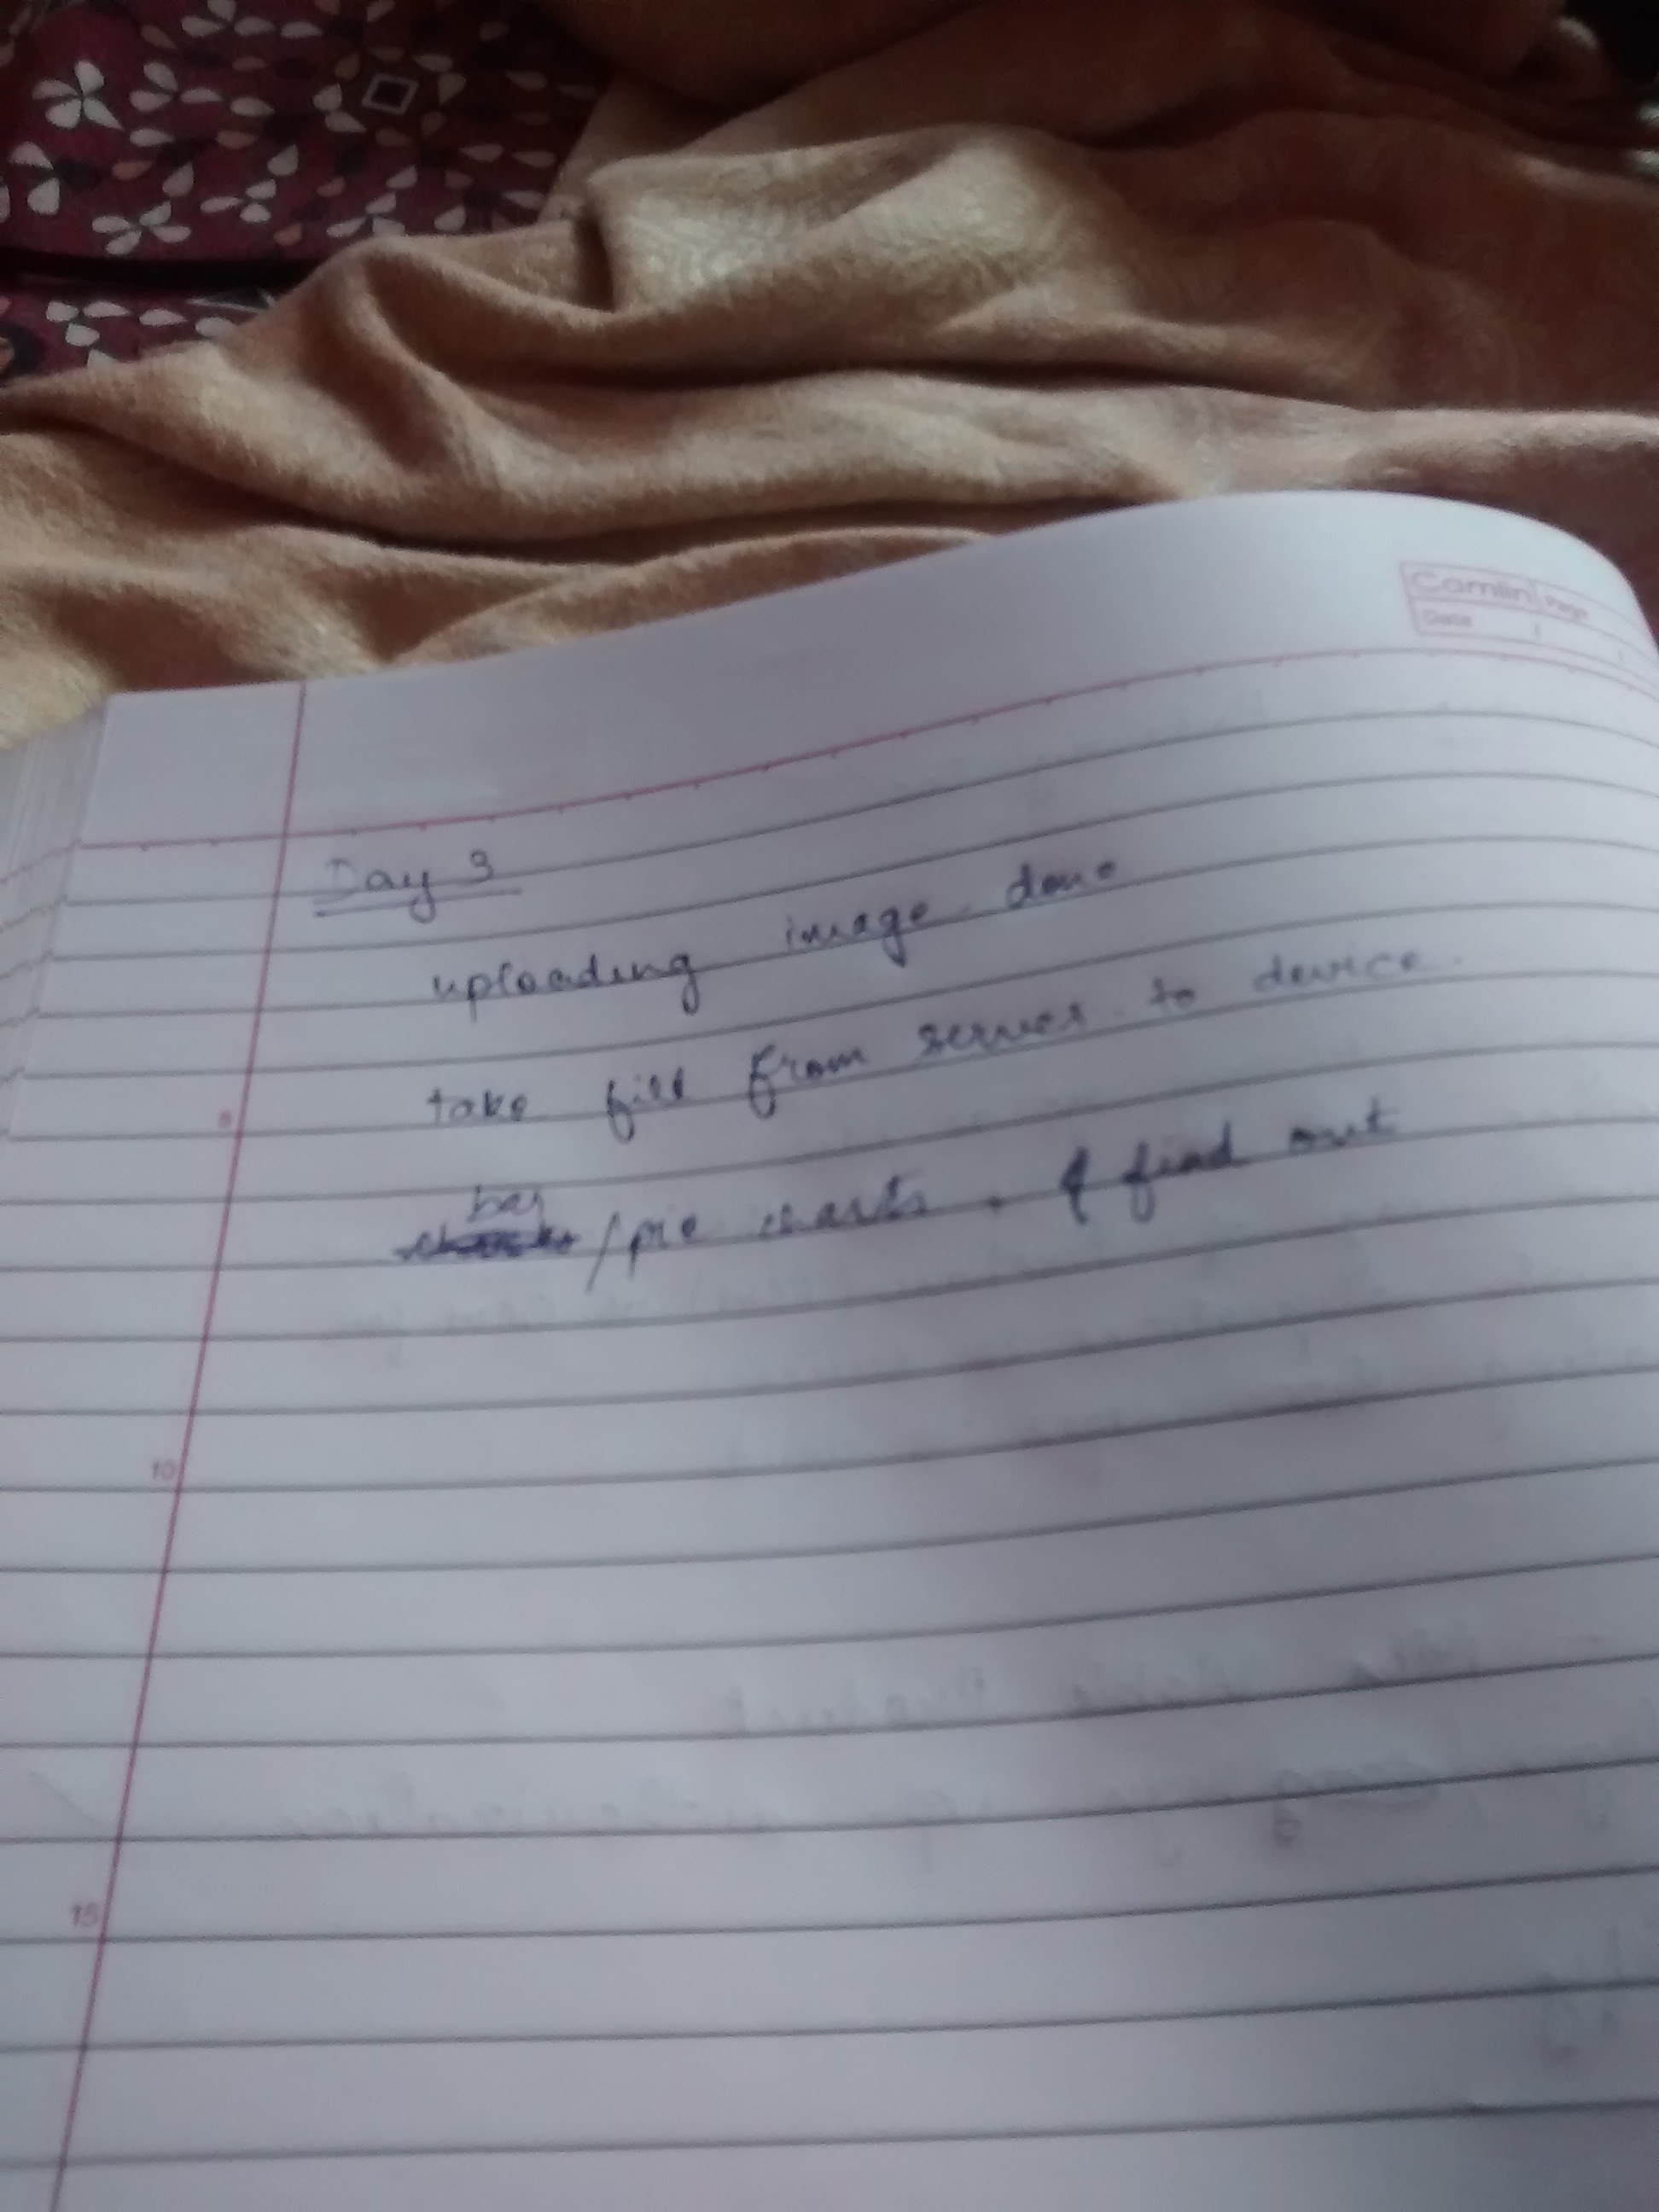 Camlin Page
Date
Day 3
uploading image done
take file from server to device.
5
bar
/pie charts. & find out
10
15